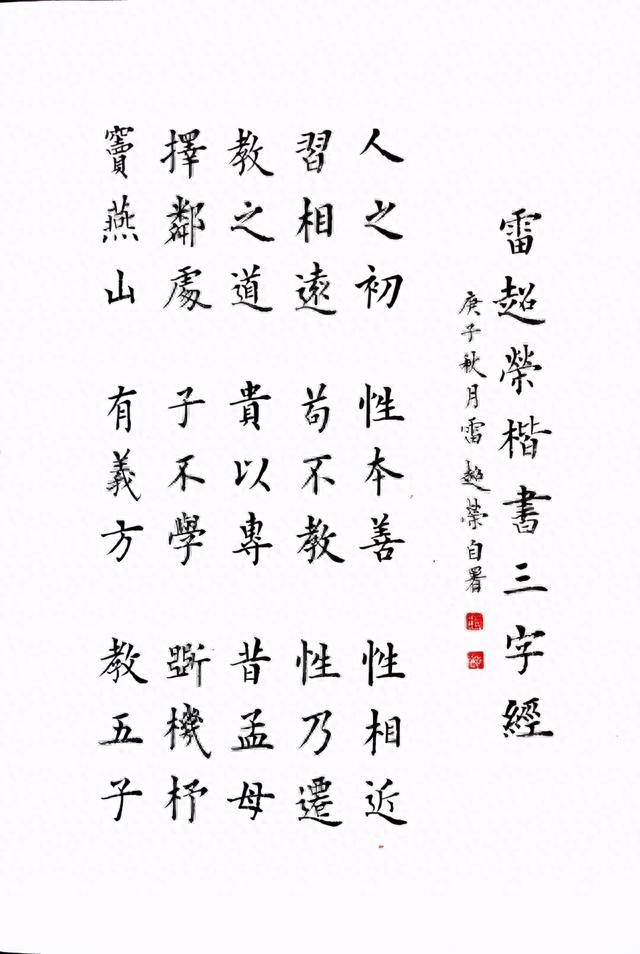 雷超榮楷書三字經
庚子秋月雷超榮自署
人之初 性本善 性相近
習相遠 苟不教 性乃遷
教之道 貴以專 昔孟母
擇鄰處 子不學 斷機杼
竇燕山 有義方 教五子